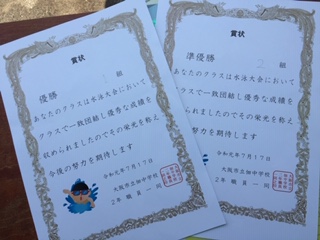 賞状
優勝 組
あなたのクラスは水泳大会において
クラスで一致団結し優秀な成績を
収められましたのでその栄光を称え
今後の努力を期待します
令和元年7月17日
大阪市立田中学校
2年 職員一同
賞状
準優勝 2 組
あなたのクラスは水泳大会において
クラスで一致団結し優秀な成績を
収められましたのでその栄光を称え
今後の努力を期待します
令和元年7月17日
大阪市立田中学校
2年 職員一同